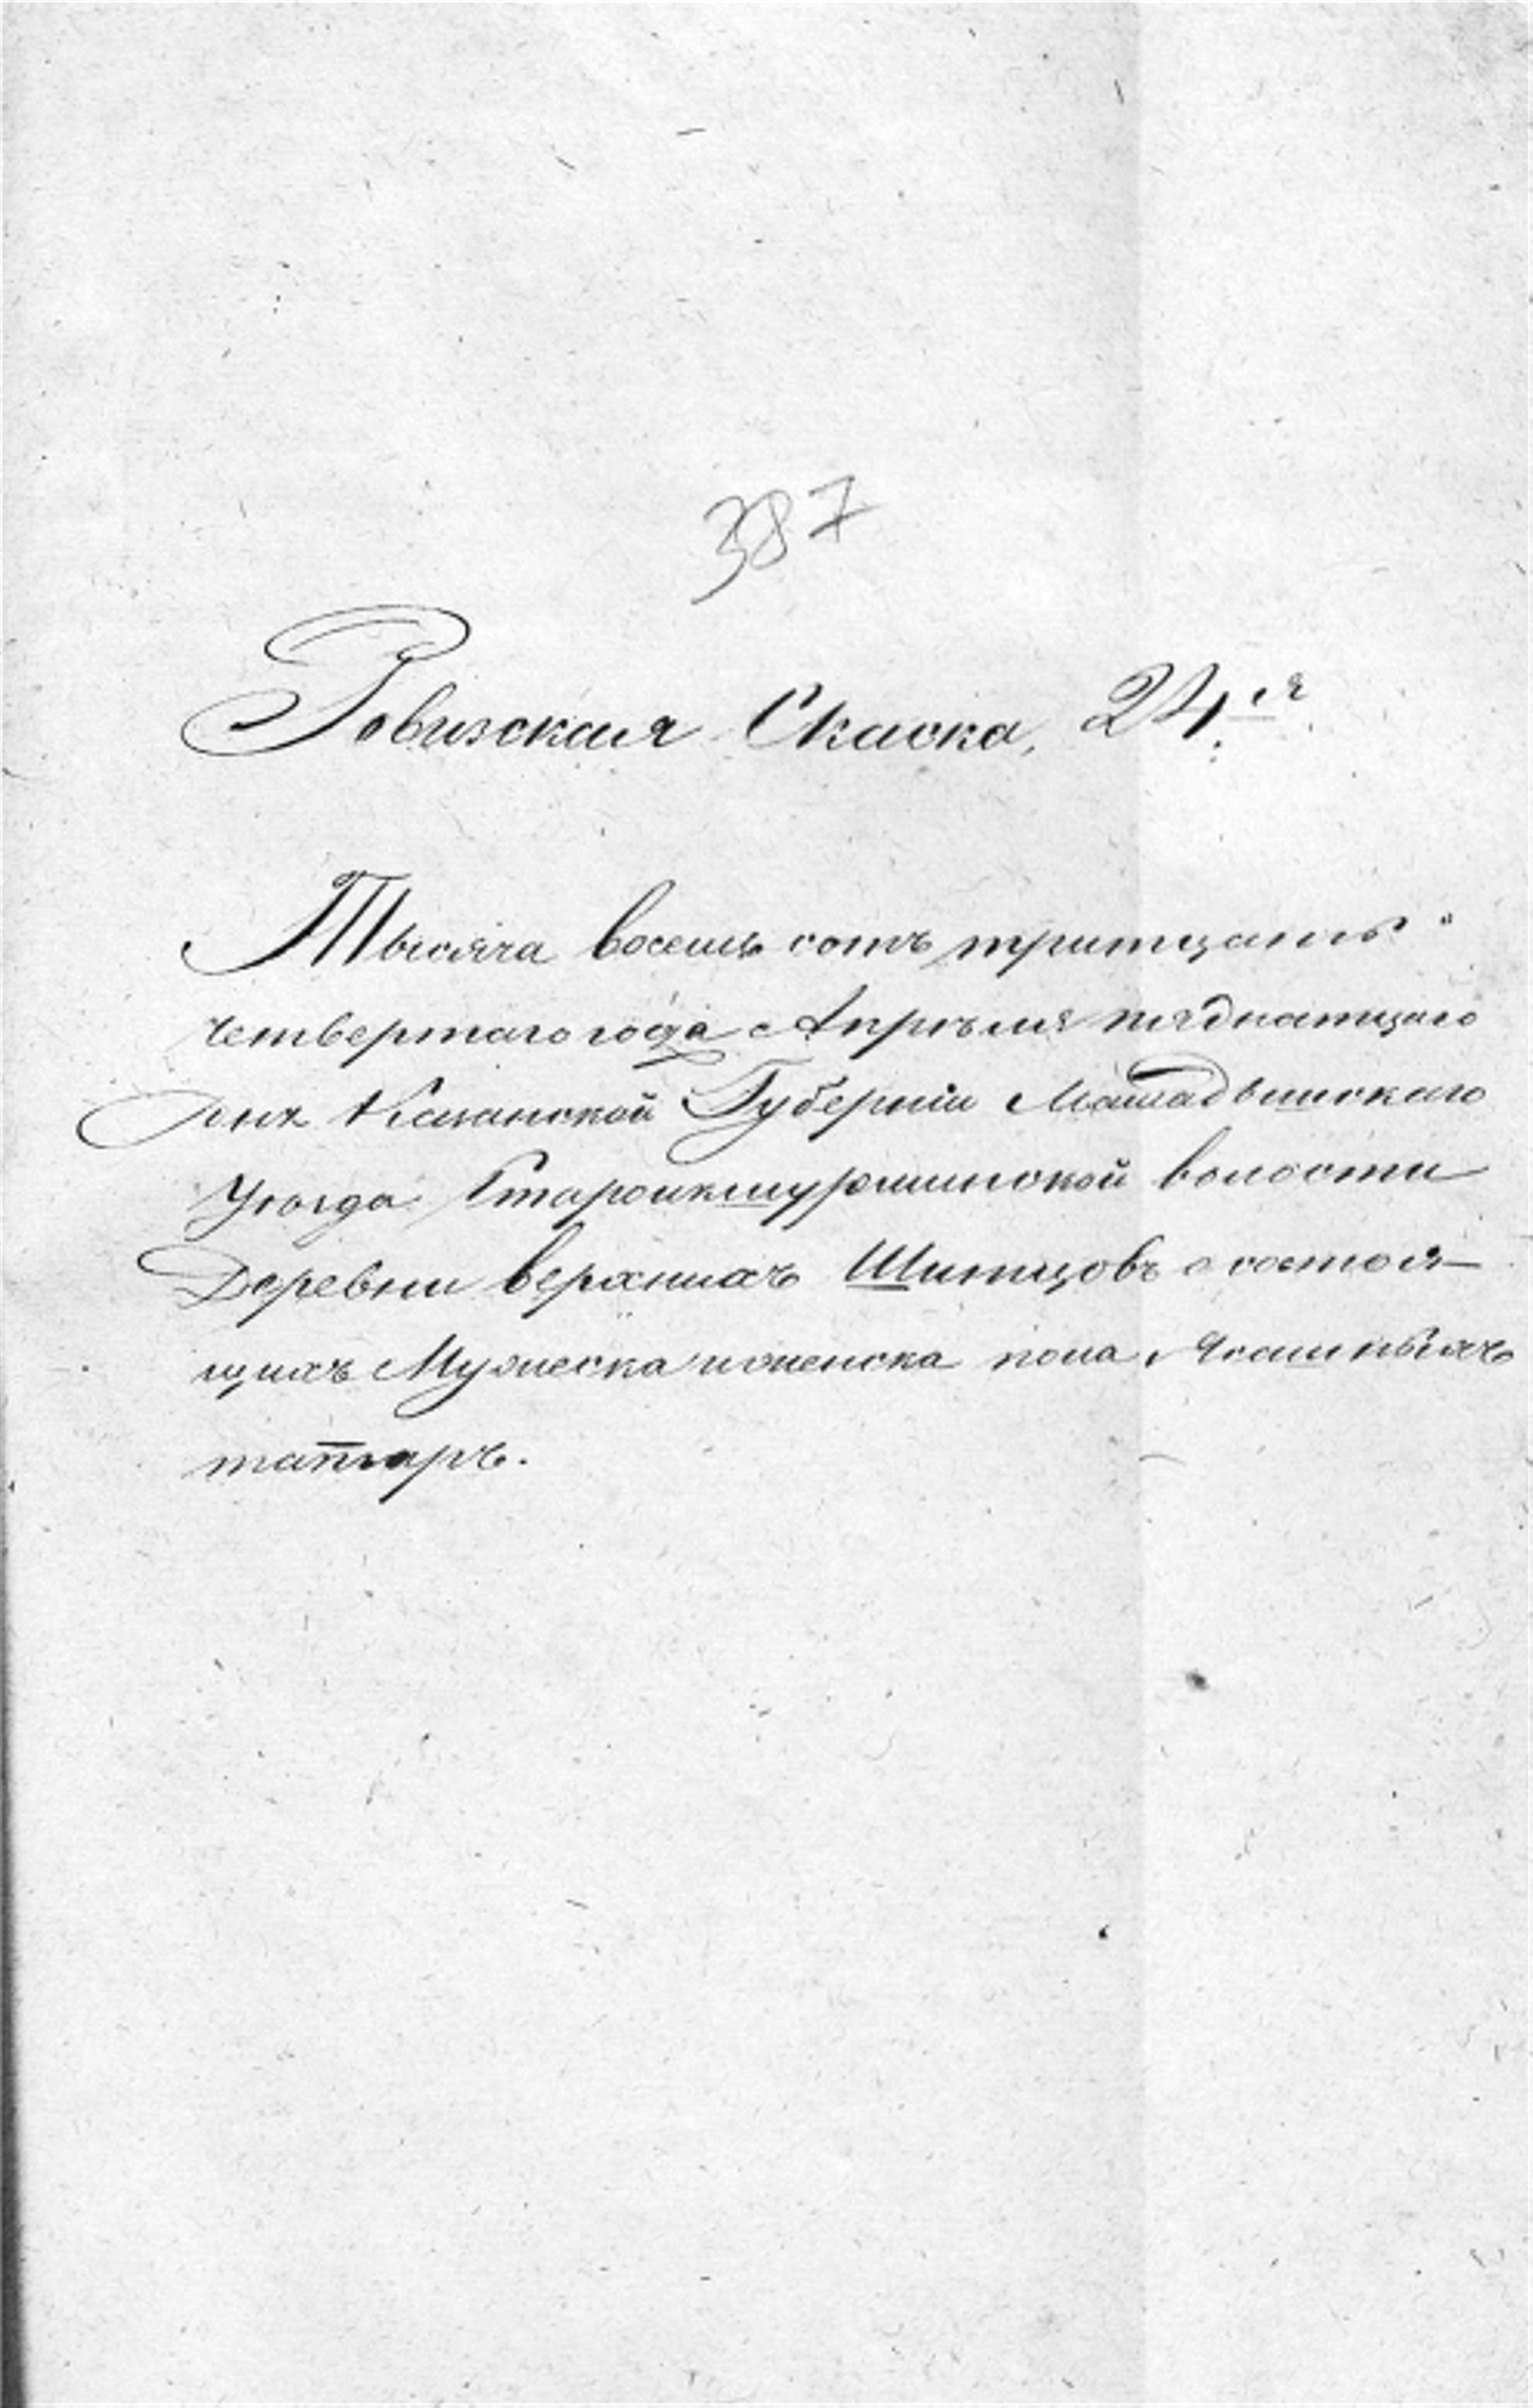 387
Ревизская Скаска, 24ая
Тысяча восемь сотъ тритцать
четвертаго года Апреля пяднатцаго
дня Казанской Губерніи Мамадышскаго
Уезда Староикшурминской волости
Деревни верхнихъ Шитцовъ о состоя-
щихъ Мужеска и женска пола Ясашныхъ
татаръ.